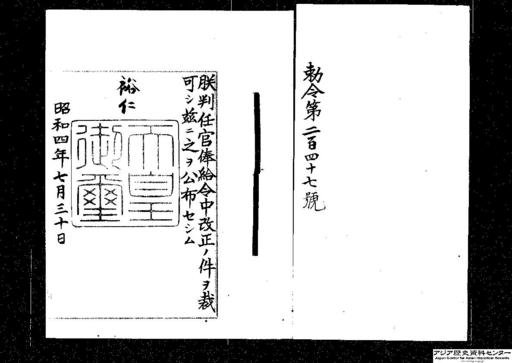 勅令第二百四十七號
朕判任官俸給令中改正ノ件ヲ裁
可シ玆ニ之ヲ公布セシム
裕仁
天皇
御璽
昭和四年七月三十日
アジア歴史資料センター
Japan Center for Asian Historical Records